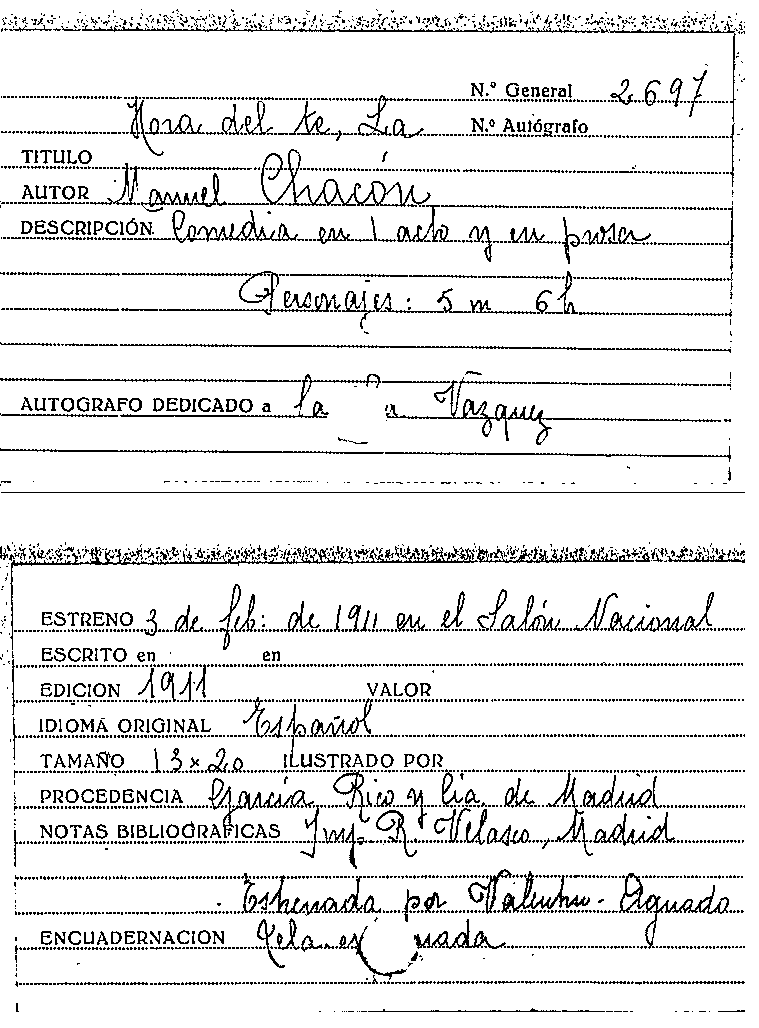 N.º General 2697
Hora del te, La N.º Autógrafo
TITULO
AUTOR Manuel Chacón
DESCRIPCIÓN Comedia en 1 acto y en prosa
Personajes: 5 m 6 h
AUTOGRAFO DEDICADO a la Vazquez
ESTRENO 3 de feb: de 1911 en el Salón Nacional
ESCRITO en en
EDICION 1911 VALOR
IDIOMA ORIGINAL Español
TAMAÑO 13 x 20 ILUSTRADO POR
PROCEDENCIA García Rico y Cia. de Madrid
NOTAS BIBLIOGRAFICAS Imp. R. Velasco, Madrid
Estrenada por Valentin - Aguado
ENCUADERNACION Tela